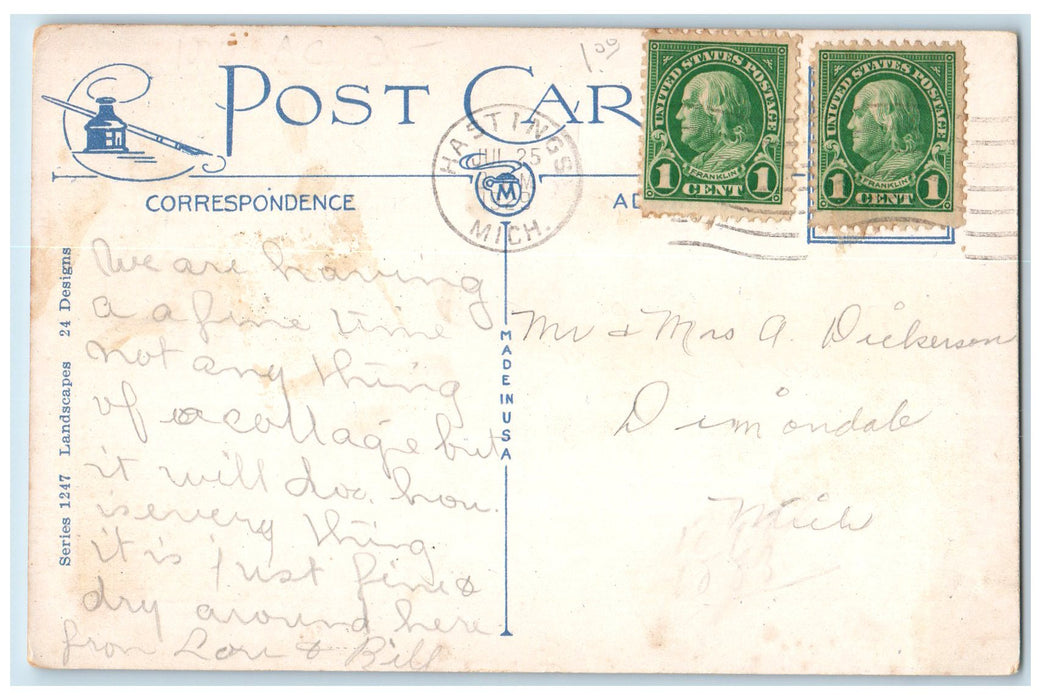 1.00
POST CAR
HASTINGS
JUL 25
M
MICH.
UNITED STATES POSTAGE
FRANKLIN
1 CENT 1
UNITED STATES POSTAGE
FRANKLIN
1 CENT 1
CORRESPONDENCE
AD
We are having
a a fine time
not any thing
of a cottage but
it will do. how
is every thing
it is just fine &
dry around here
from Lou & Bill
Series 1247 Landscapes 24 Designs
MADE IN USA
Mr & Mrs A. Dickerson
Dimondale
Mich